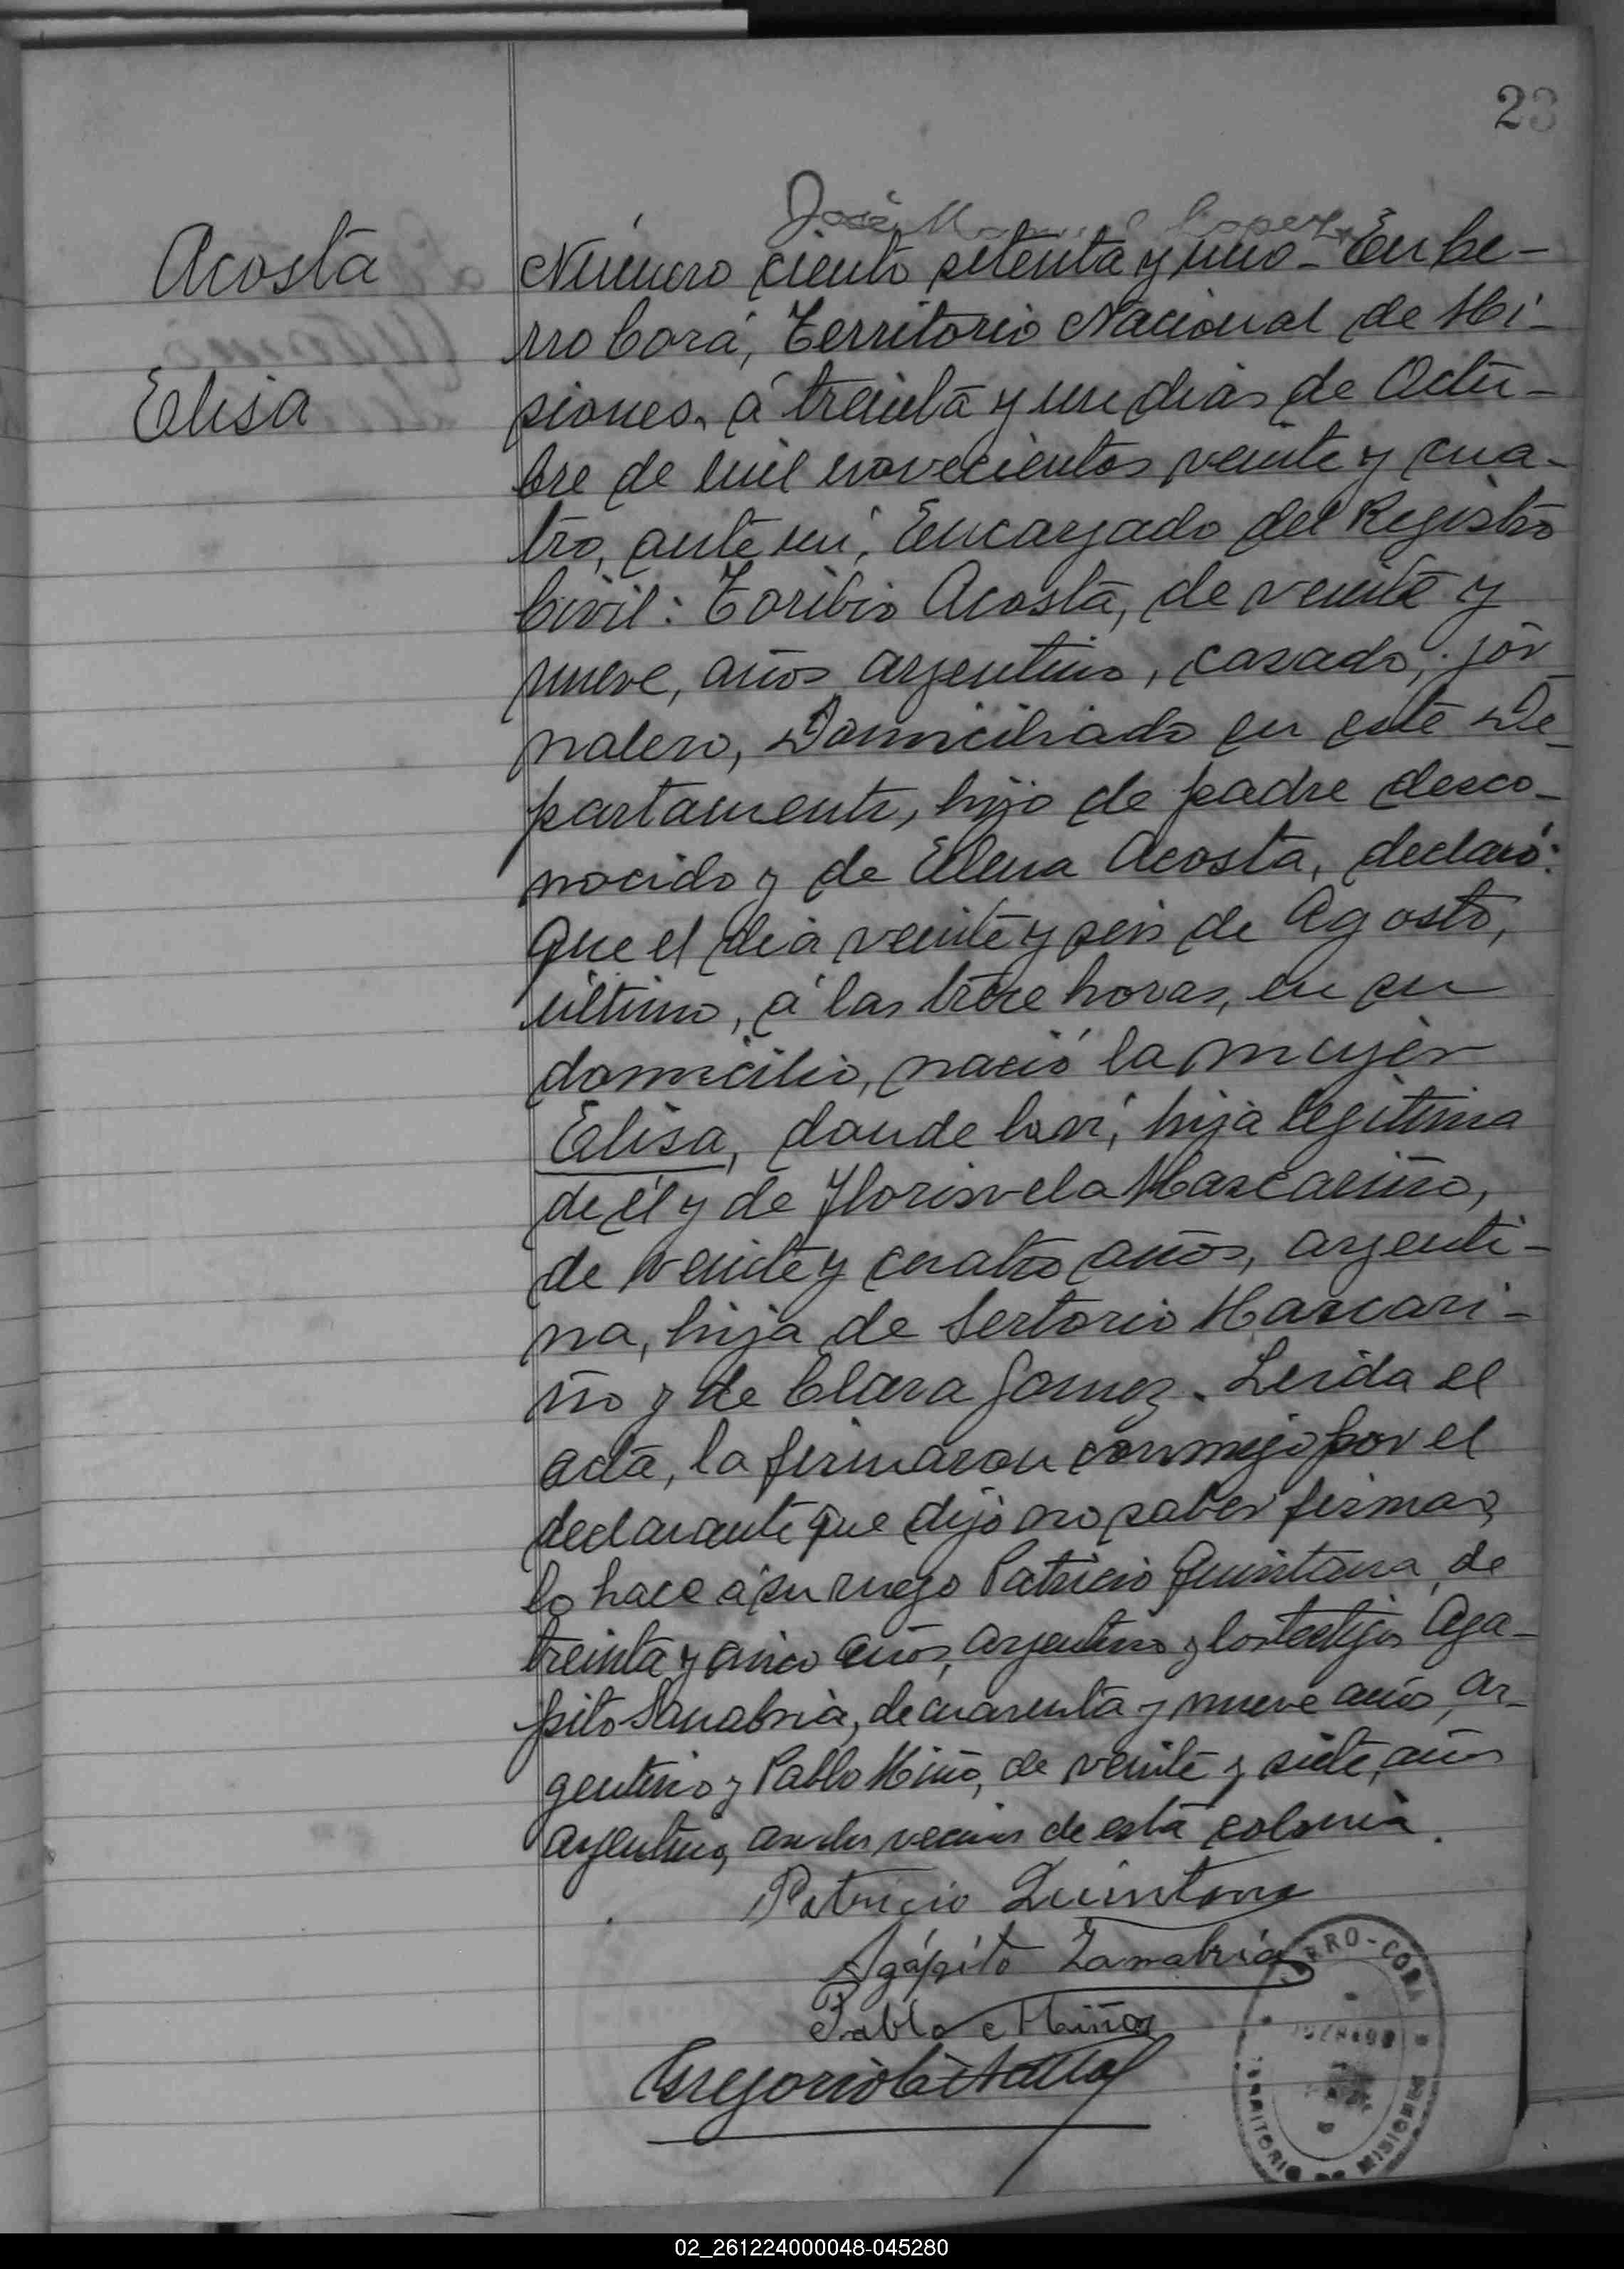 23
José Lopez
Acosta
Elisa
Número ciento setenta y uno - En Ce-
rro Corá, Territorio Nacional de Mi-
siones, á treinta y un dias de Octu-
bre de mil novecientos veinte y cua-
tro, ante mi, Encargado del Registro
Civil: Toribio Acosta, de veinte y
nueve, años argentino, casado, jor
nalero, Domiciliado en este De-
partamento, hijo de padre desco-
nocido y de Elena Acosta, declaró:
Que el dia veinte y seis de Agosto,
último, á las trece horas, en su
domicilio, nació la mujer
Elisa, donde la vi, hija legitima
de él y de Florisvela Mascariño,
de veinte y cuatro años, argenti-
na, hija de Sertorio Mascari-
ño y de Clara Gomez. Leida el
acta, la firmaron conmigo por el
declarante que dijo no saber firmar,
lo hace á su ruego Patricio Quintana, de
treinta y cinco años, argentino y los testigos Aga-
pito Sanabria, de cuarenta y nueve años, ar-
gentino y Pablo Miño, de veinte y siete, años
argentino, ambos vecinos de esta colonia.
Patricio Quintana
Agápito Zanabria
Pablo Miño
Gregorio
CERRO-CORA
TERRITORIO DE MISIONES
02_261224000048-045280